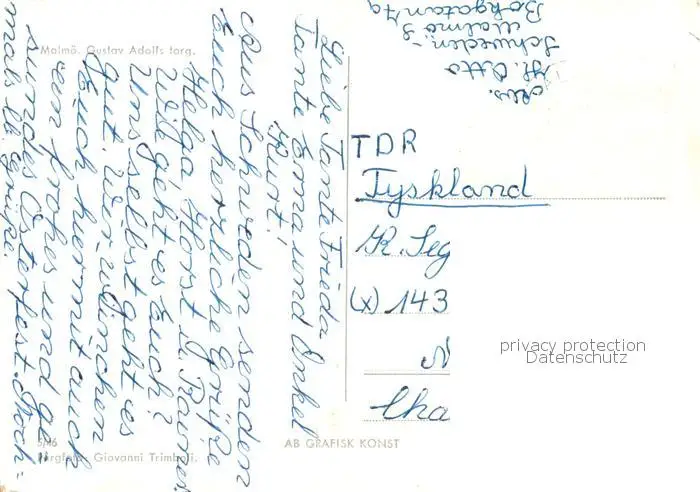 Malmö. Gustav Adolfs torg.
Liebe Tante Frida
Tante Erna und Onkel
Kurt!
Aus Schweden senden
Euch herrliche Grüße
Helga Horst u. Rainer
Wie geht es Euch?
Uns selbst geht es
gut. Wir wünschen
Euch hiermit auch
ein frohes und ge-
sundes Osterfest. Noch-
mals lb. Grüße.
Abs.
H. Otto
Schweden -
Malmö 3
Bokgatan 7a
TDR
Tyskland
K. Seg
(x) 143
N
Cha
privacy protection
Datenschutz
5/46
Färgfoto: Giovanni Trimboli.
AB GRAFISK KONST